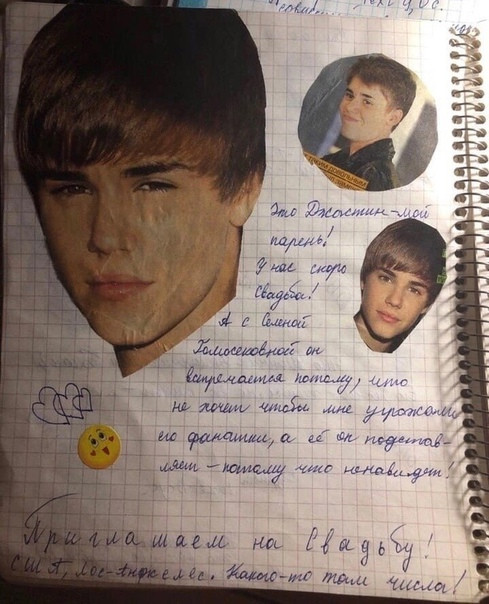 Это Джастин – мой
парень!
У нас скоро
Свадьба!
А с Селеной
Гомосековной он
встречается потому, что
не хочет чтобы мне угрожали
его фанатки, а её он подстав-
ляет – потому что ненавидет!
Приглашаем на Свадьбу!
США, Лос-Анджелес. Какого-то там числа!